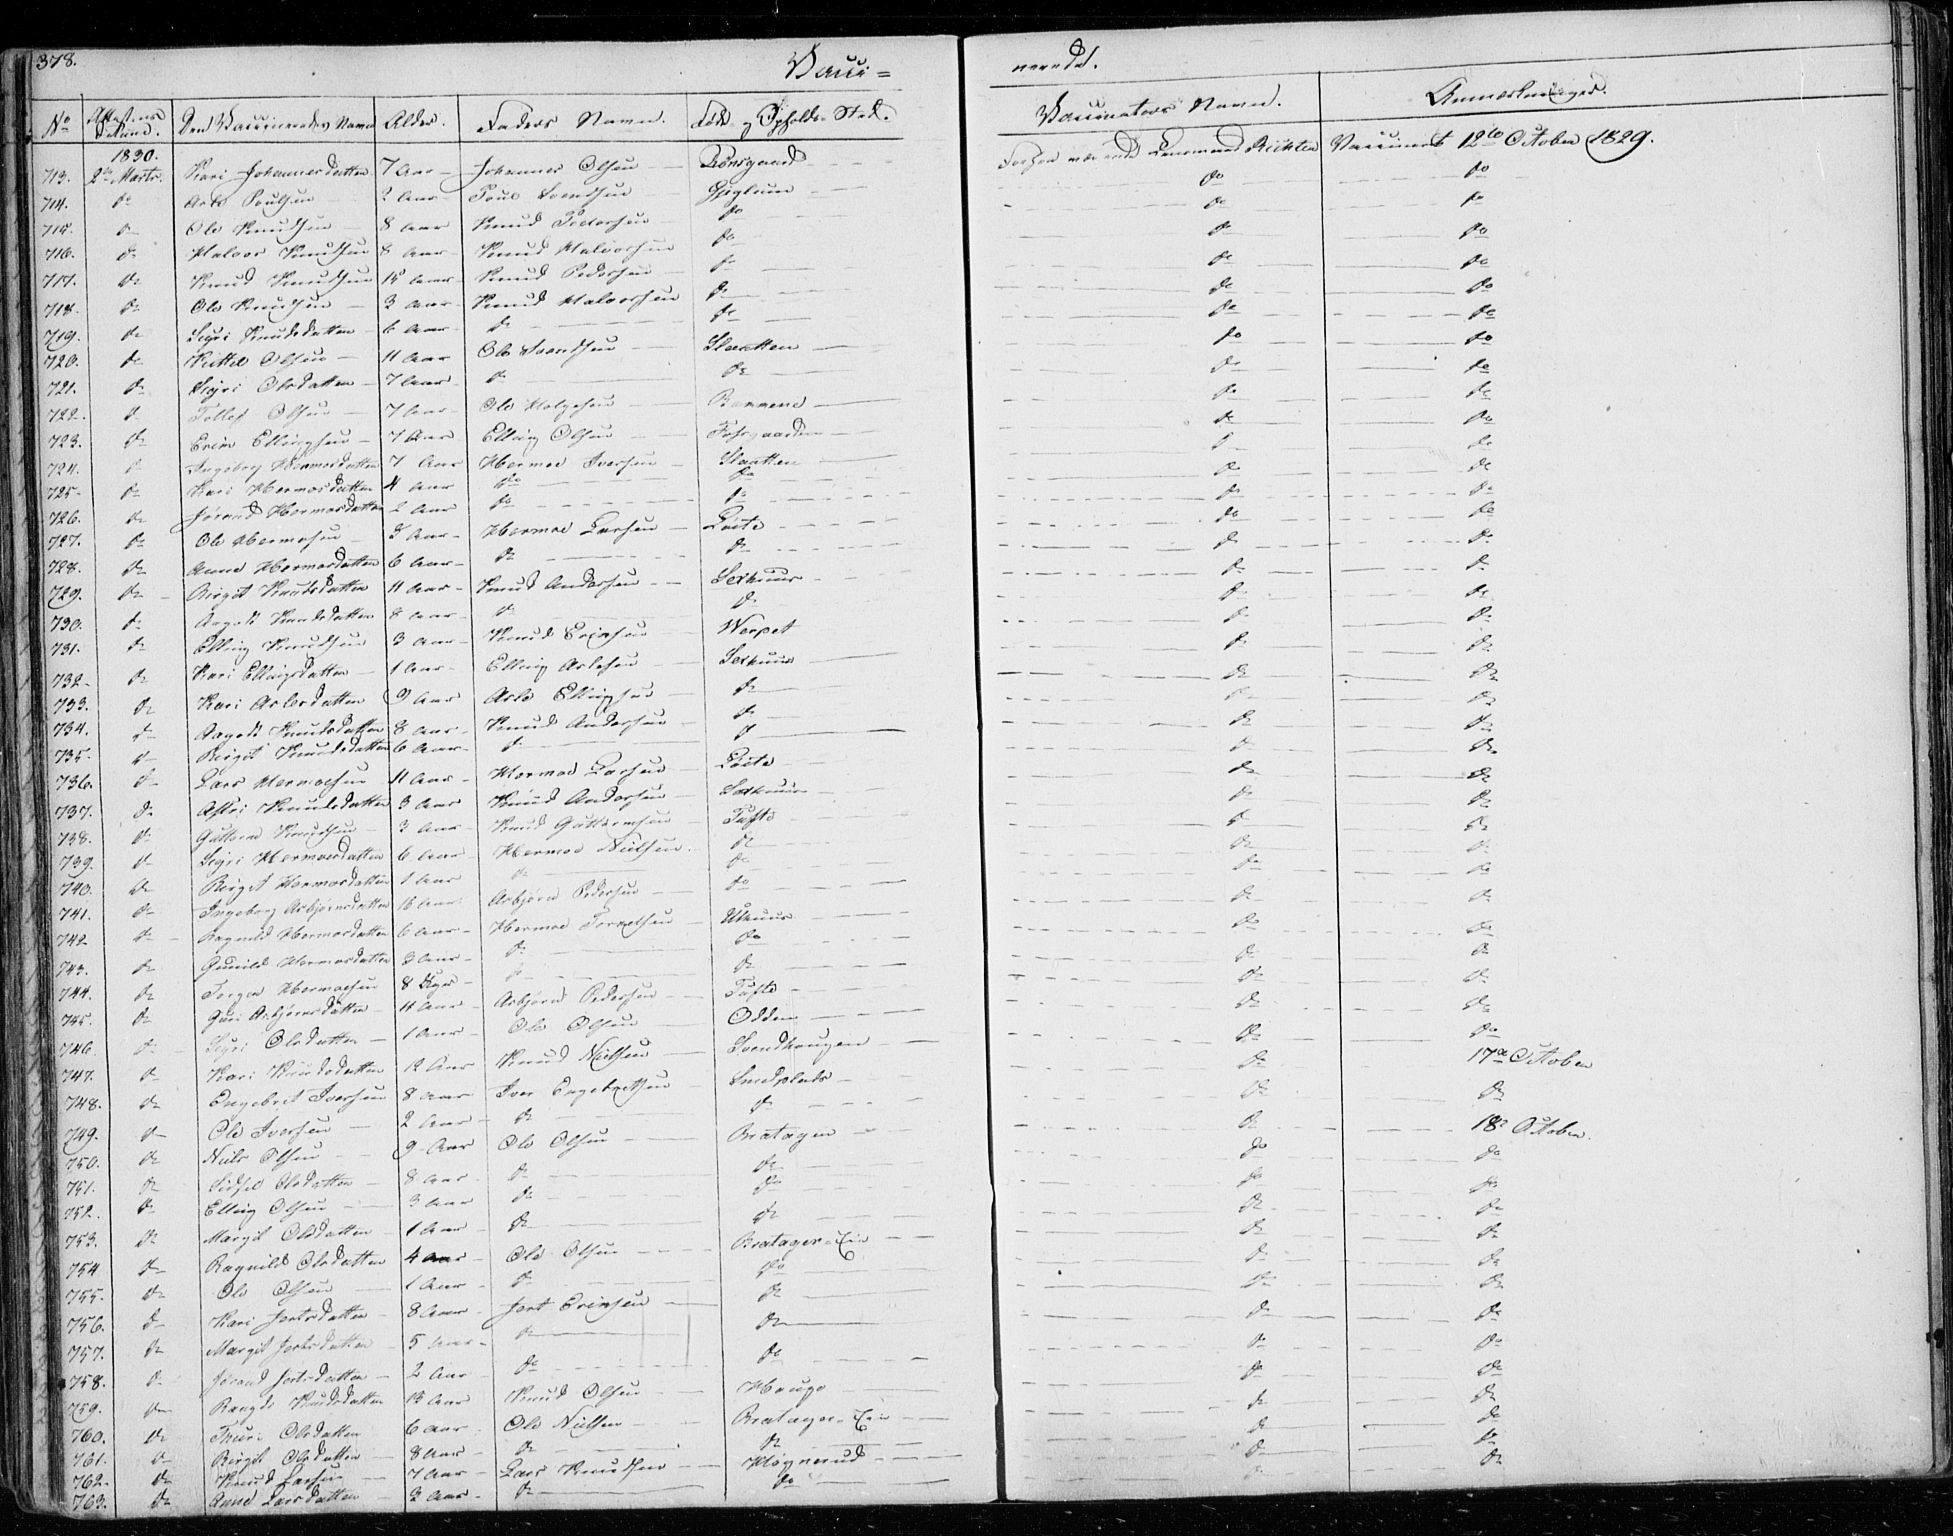 378. Vacci= nerede.
No Attestens Datum. Den Vaccineredes Navn Alder. Faders Navn. Føde- og Opholds-Sted. Vaccinateurs Navn. Anmærkninger.
1830.
713. 2den Marts. Kari Johannesdatten 7 Aar Johannes Olsen Vaccineret 12te October 1829.
714. do Asle Poulsen 2 Aar Poul Svendsen do do
715. do Ole Knudsen 8 Aar Knud Pedersen do do do
716. do Halvor Knudsen 8 Aar Knud Halvorsen do do do
717. do Knud Knudsen Aar Knud Pedersen do do do
718. do Ole Knudsen 3 Aar Knud Halvorsen do do do
719. do Sigri Knudsdatten 6 Aar do do do do
720. do Kittil Olsen 11 Aar Ole Svendsen Slaatten do do
721. do Sigri Olsdatten 7 Aar do do do do
722. do Tollef Olsen 7 Aar Ole Holgesen do do
723. do Erik Ellingsen 7 Aar Elling Olsen do do
724. do Ingeborg Hermosdatten 7 Aar Hermoe Iversen Slaatten do do
725. do Kari Hermosdatten 4 Aar do do do do
726. do Jørand Hermosdatten 2 Aar do do do do
727. do Ole Hermosen 8 Aar Hermoe Larsen do do
728. do Anne Hermosdatten 6 Aar do do do do
729. do Birgit Knudsdatten 11 Aar Knud Andersen do do
730. do Aagodt Knudsdatten 8 Aar do do do do
731. do Elling Knudsen 3 Aar Knud Erichsen Werpet do do
732. do Kari Ellingsdatten 1 Aar Elling Aslesen do do
733. do Kari Aslesdatten 9 Aar Asle Ellingsen do do do
734. do Aagodt Knudsdatten 8 Aar Knud Andersen do do do
735. do Birgit Knudsdatten 6 Aar do do do do
736. do Lars Hermoesen 11 Aar Hermoe Larsen do do
737. do Astri Knudsdatten 3 Aar Knud Andersen do do
738. do Guttorm Knudsen 3 Aar Knud Guttormsen Tufte do do
739. do Sigri Hermoesdatten 6 Aar Hermoe Nielsen do do do
740. do Birgit Hermosdatten 1 Aar do do do do
741. do Ingeborg Asbjørnsdatten 16 Aar Asbjørn Pedersen do do do
742 do Ragnild Hermosdatten 6 Aar Hermoe Torkelsen do do
743. do Gunild Hermosdatten 3 Aar do do do do
744. do Torger Hermoesen 8 Uger do do do do
745. do Guri Asbjørnsdatten 11 Aar Asbjørn Pedersen Tufte do do
746. do Sigri Olsdatten 1 Aar Ole Olsen Odden do do
747. do Kari Knudsdatten 12 Aar Knud Nielsen Svendhaugen do 17de October
748. do Engebret Iversen 8 Aar Iver Engebretsen Smedplads do do
749. do Ole Iversen 2 Aar do do do 18de October.
750. do Niels Olsen 9 Aar Ole Olsen Bratager do do
751. do Sidsel Olsdatten 8 Aar do do do do
752. do Elling Olsen 3 Aar do do do do
753. do Margit Olsdatten 1 Aar do do do do
754 do Ragnild Olsdatten 4 Aar Ole Olsen Bratager-Eie do do
755. do Ole Olsen 1 Aar do do do do
756. do Kari Jertsdatten 8 Aar Jert Erichsen do do do
757. do Margit Jertsdatten 5 Aar do do do do
758. do Jørand Jertsdatten 2 Aar do do do do
759. do Knudsdatten 13 Aar Knud Olsen Hauge do do
760. do Thuri Olsdatten 6 Aar Ole Nielsen Bratager-Eie do do
761. do Birgit Olsdatten 8 Aar do do do do
762. do Knud Larsen 7 Aar Lars Knudsen Høgnerud do do
763. do Anne Larsdatten 2 Aar do do